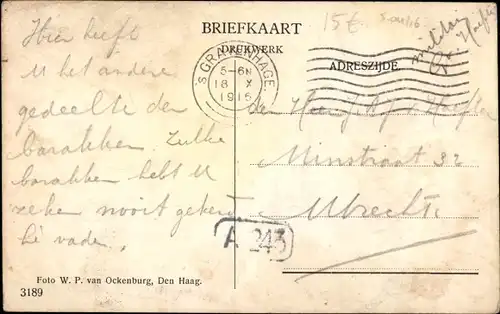 BRIEFKAART
DRUKWERK
ADRESZIJDE.
15 €
'S GRAVENHAGE
5-6N
18 X
1916
Hier heeft
U het andere
gedeelte der
barakken. Zulke
barakken hebt U
zeker nooit gekend
hè vader.
den Heer
Minstraat 32
Utrecht
A 243
Foto W. P. van Ockenburg, Den Haag.
3189